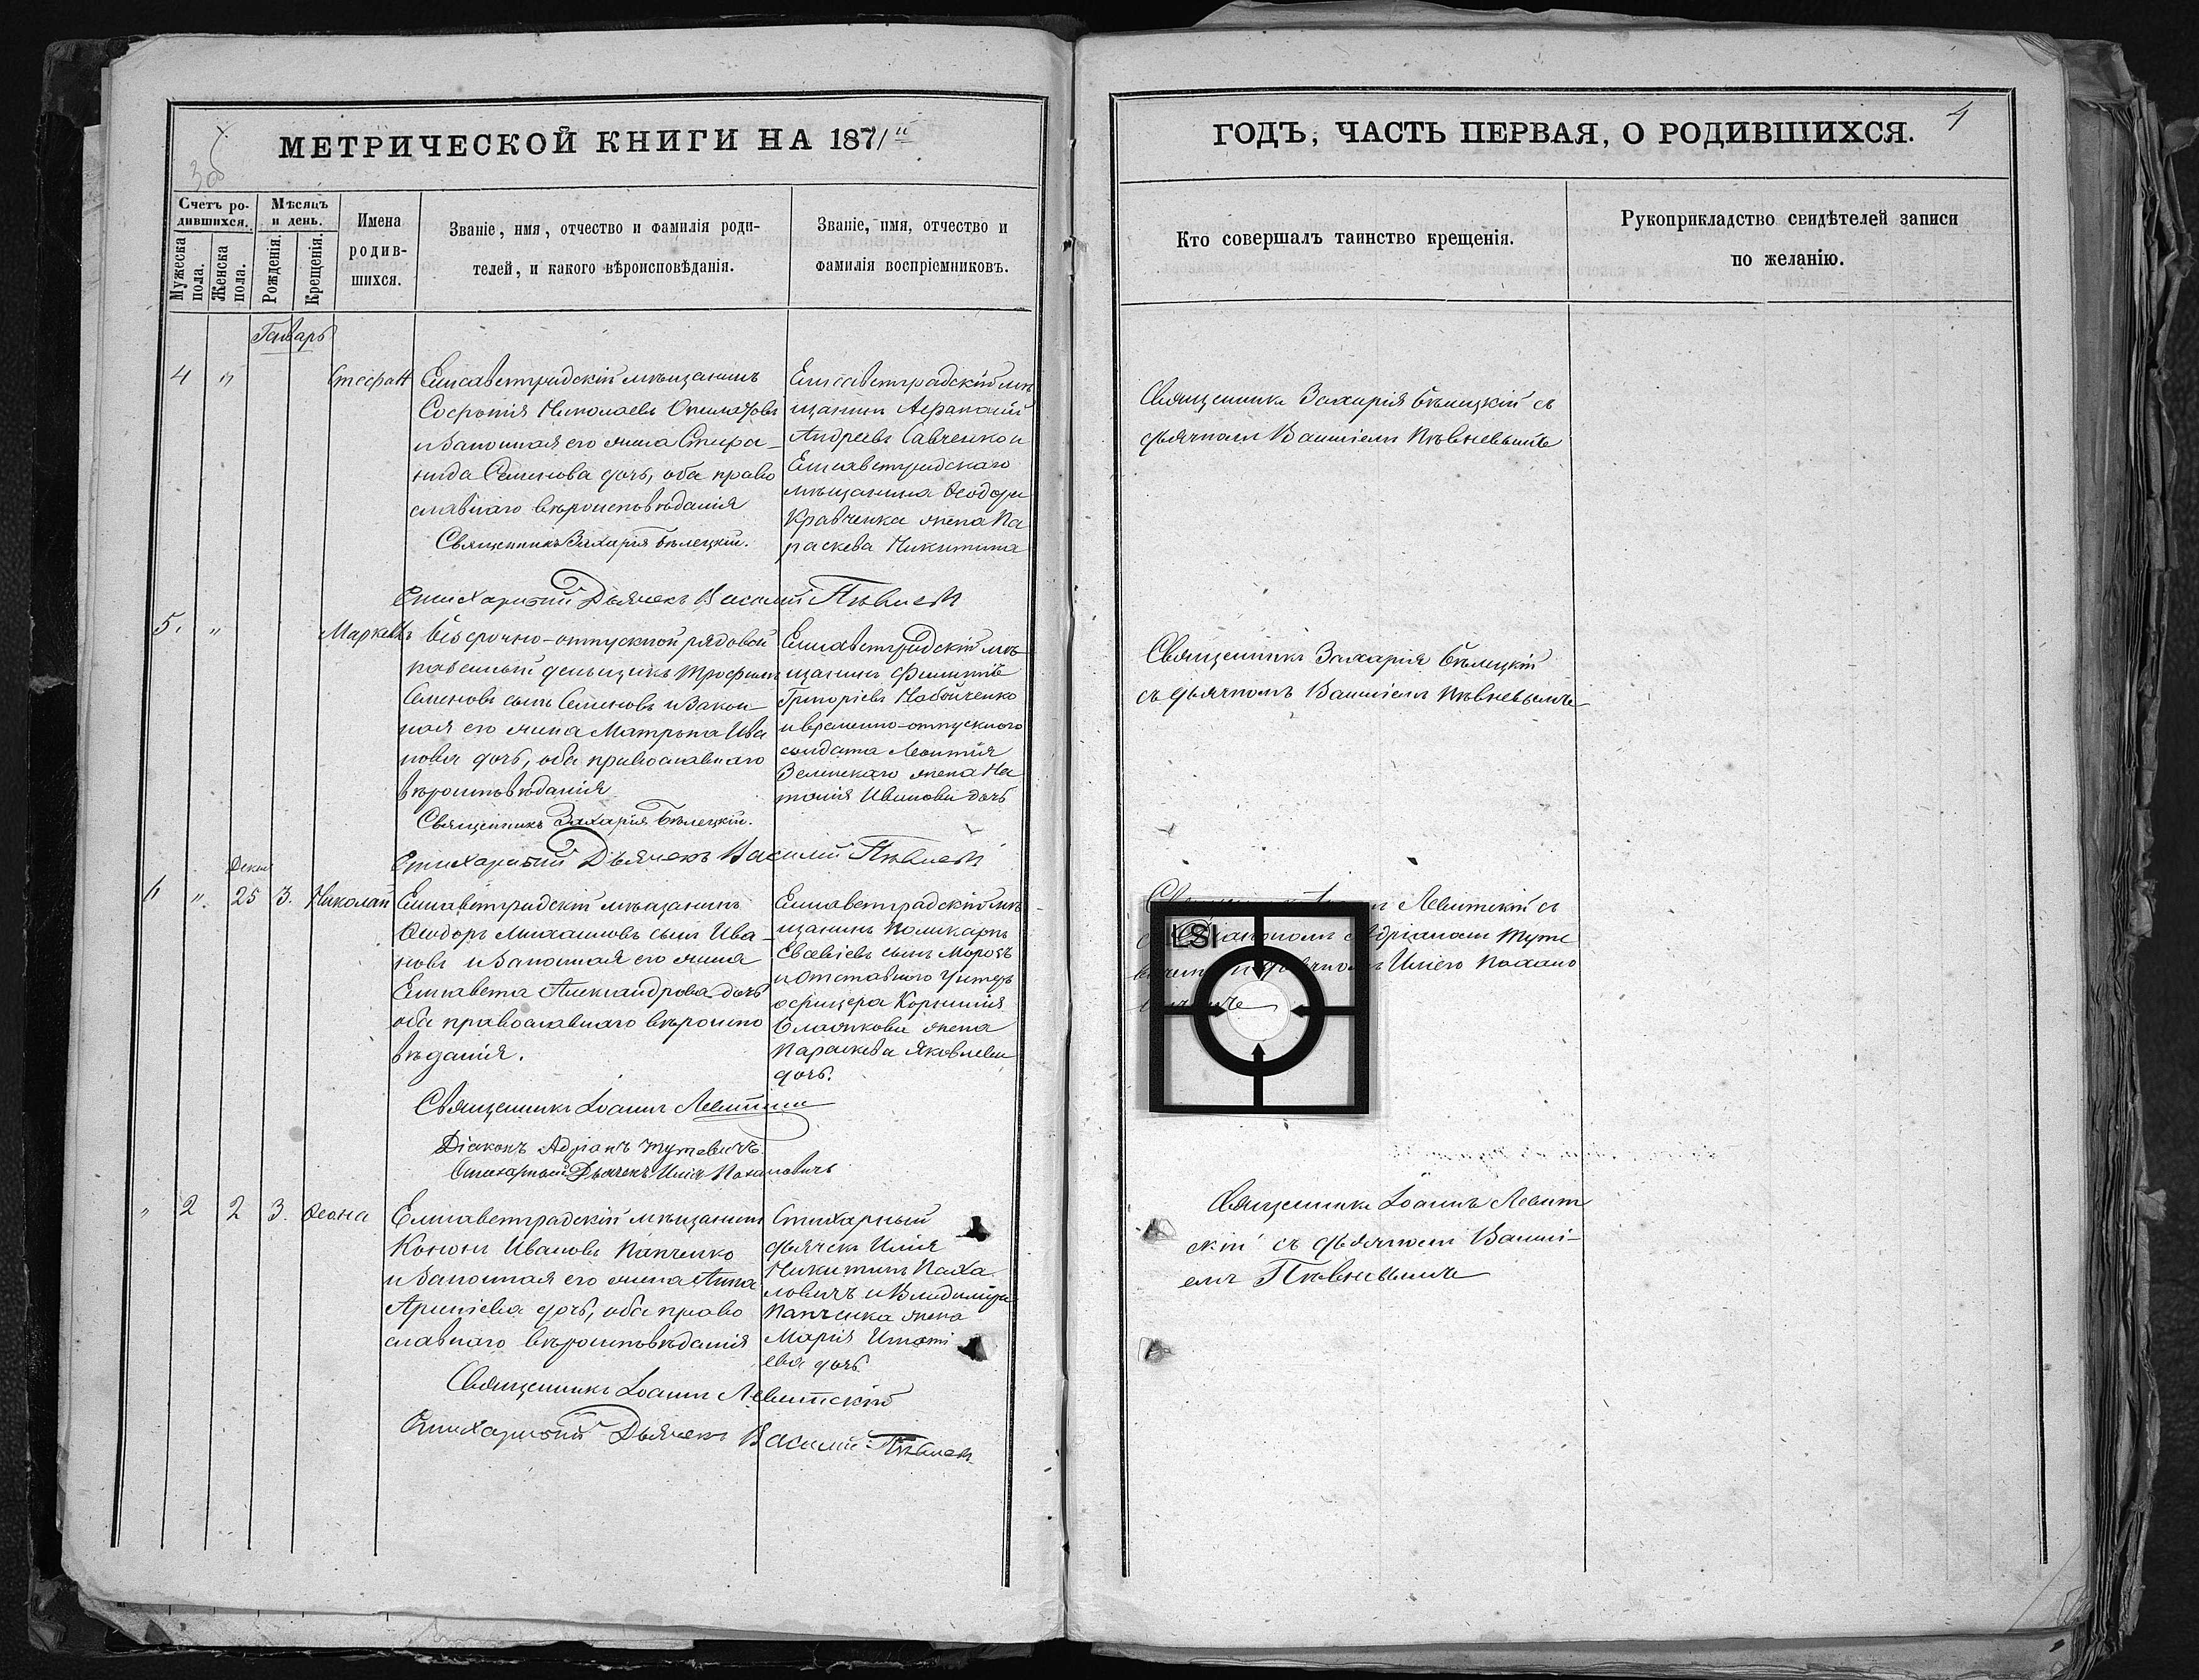 МЕТРИЧЕСКОЙ КНИГИ НА 1871й
Счетъ ро-
дившихся.
Мѣсяцъ
и день.
Мужеска
пола.
Женска
пола.
Рожденія.
Крещенія.
Имена
родив-
шихся.
Званіе, имя, отчество и фамилія роди-
телей, и какого вѣроисповѣданія.
Званіе, имя, отчество и
фамилія воспріемниковъ.
Генварь
4 " Стефанъ
Елисаветградскій мѣщанинъ
Софроній Николаевъ
и законная его жена Стефа-
нида Семенова дочь, оба право
славнаго вѣроисповѣданія
Священникъ Захарія Бѣлецкій.
Стихарный Дьячекъ Василій Пѣвневъ
Елисаветградскій мѣ
щанинъ Афанасій
Андреевъ Савченко и
Елисаветградскаго
мѣщанина Ѳеодора
Кравченка жена Па
раскева Никитина
5. " Маркеллъ
Безсрочно-отпускной рядовой
казенный деньщикъ Трофимъ
Семеновъ сынъ Семеновъ и закон
ная его жена Матрона Ива
нова дочь, оба православнаго
вѣроисповѣданія
Священникъ Захарія Бѣлецкій.
Стихарный Дьячекъ Василій Пѣвневъ
Елисаветградскій мѣ
щанинъ Филиппъ
Григоріевъ Набойченко
и временно-отпускного
солдата Леонтія
Зелинскаго жена На
талія Иванова дочь
Декаб
6 ". 25 3. Николай
Елисаветградскій мѣщанинъ
Ѳеодоръ Михаиловъ сынъ Ива-
новъ и законная его жена
Елисавета Александрова дочь
оба православнаго вѣроиспо
вѣданія.
Священникъ Іоаннъ Левитскій
Діаконъ Адріанъ Тутевичъ
Стихарный Дьячекъ Илія Пахаловичъ
Елисаветградскій мѣ
щанинъ Поликарпъ
сынъ Морозъ
и отставного унтеръ
офицера Корнилія
жена
Параскева Яковлева
дочь.
" 2 2 3. Ѳеона
Елисаветградскій мѣщанинъ
Кононъ Ивановъ Панченко
и законная его жена Анна
дочь, оба право
славнаго вѣроисповѣданія
Священникъ Іоаннъ Левитскій
Стихарный Дьячекъ Василій Пѣвневъ
Стихарный
дьячекъ Илія
Никитинъ Паха
ловичъ и Владиміра
Панченка жена
Марія Игнаті
ева дочь
ГОДЪ, ЧАСТЬ ПЕРВАЯ, О РОДИВШИХСЯ.
4
Кто совершалъ таинство крещенія.
Рукоприкладство свидѣтелей записи
по желанію.
Священникъ Захарія Бѣлецкій съ
дьячкомъ Василіемъ Пѣвневымъ
Священникъ Захарія Бѣлецкій
съ дьячкомъ Василіемъ Пѣвневымъ
Левитскій съ
Адріаномъ Туте
Иліею Пахало
LSI
Священникъ Іоаннъ Левит
скій съ дьячкомъ Василі-
емъ Пѣвневымъ